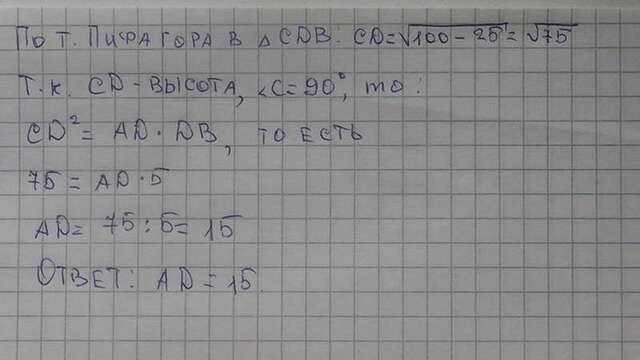 По т. Пифагора в △CDB: CD=√100-25=√75
Т.к. CD-высота, ∠C=90°, то:
CD²= AD·DB, то есть
75=AD·5
AD= 75:5=15
Ответ: AD=15.